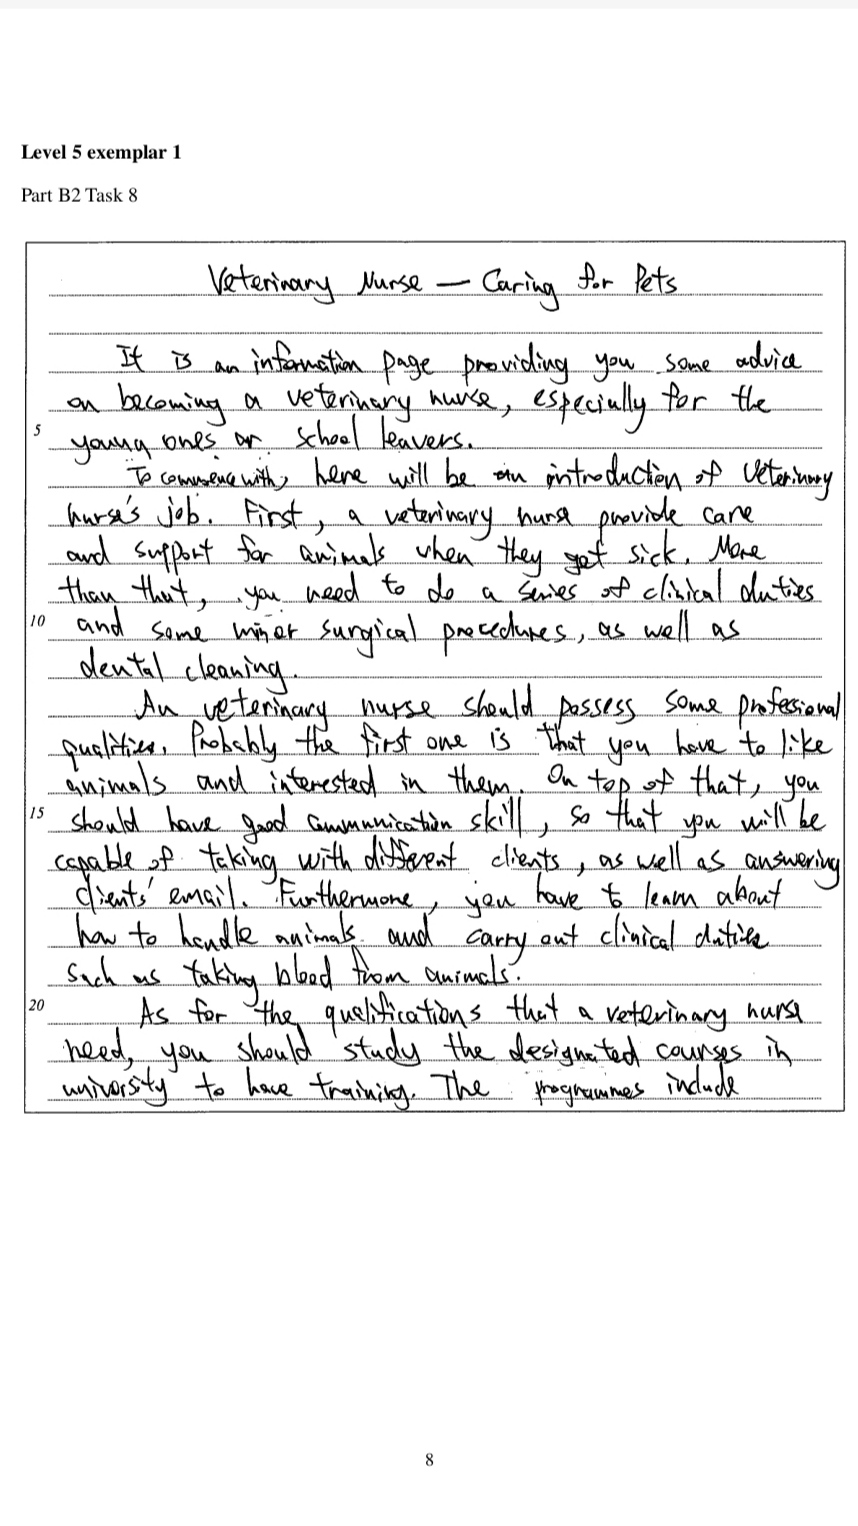 Level 5 exemplar 1
Part B2 Task 8
Veterinary Nurse — Caring for Pets
It is an information page providing you some advice
on becoming a veterinary nurse, especially for the
5 young ones or school leavers.
To commence with, here will be an introduction of veterinary
nurse's job. First, a veterinary nurse provide care
and support for animals when they get sick. More
than that, you need to do a series of clinical duties
10 and some miner surgical procedures, as well as
dental cleaning.
An veterinary nurse should possess some professional
qualities. Probably the first one is that you have to like
animals and interested in them. On top of that, you
15 should have good communication skill, so that you will be
capable of taking with different clients, as well as answering
clients' email. Furthermore, you have to learn about
how to handle animals and carry out clinical duties
such as taking blood from animals.
20 As for the qualifications that a veterinary nurse
need, you should study the designated courses in
university to have training. The programmes include
8